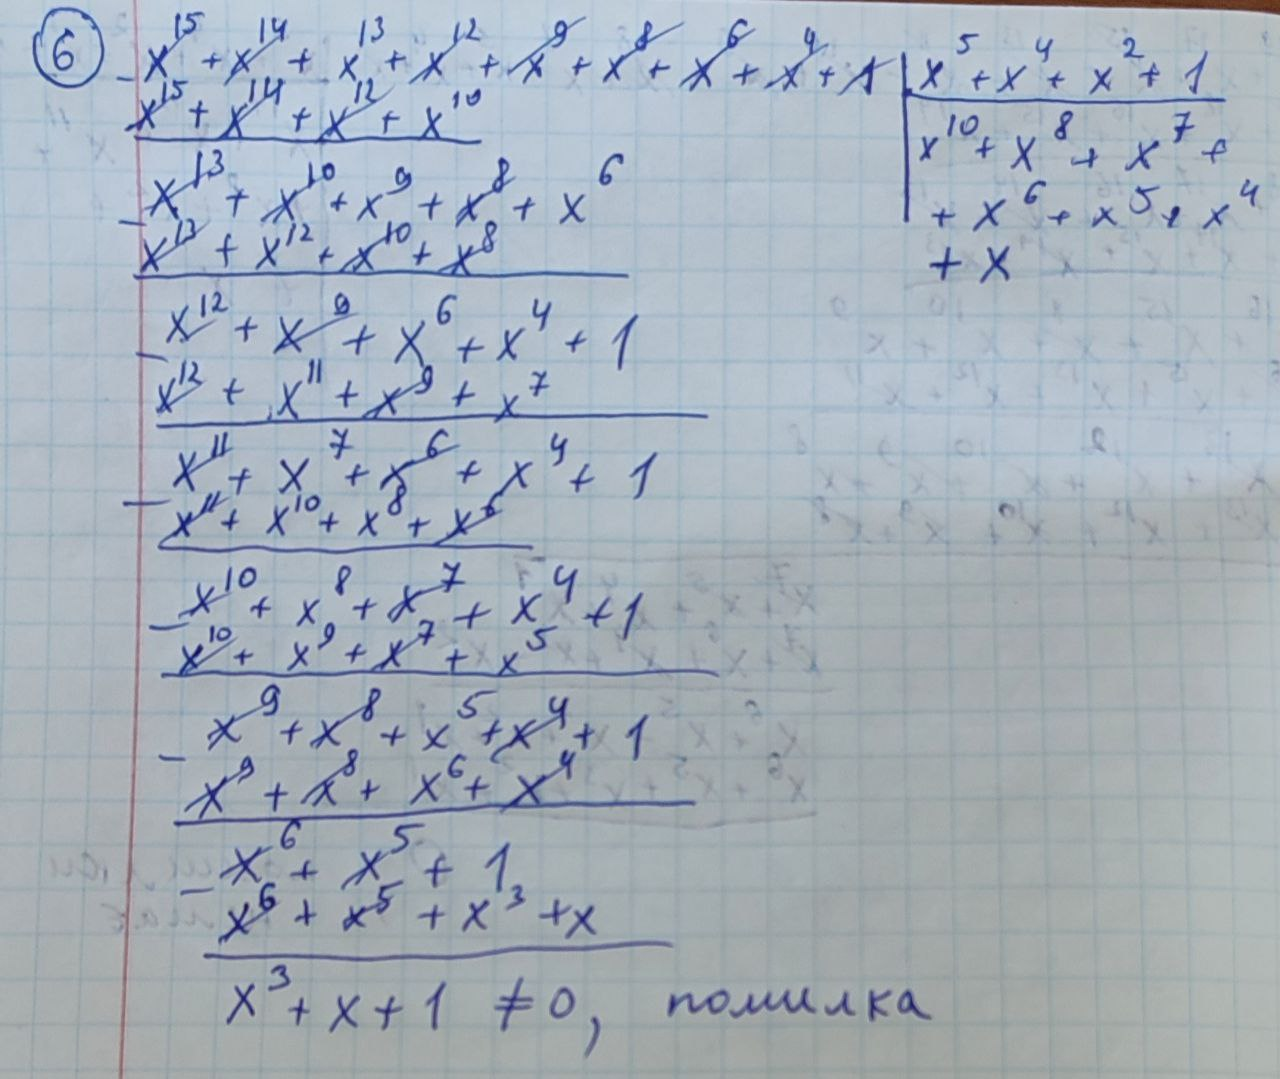 6
x¹⁵ + x¹⁴ + x¹³ + x¹² + x⁹ + x⁸ + x⁶ + x⁴ + 1 | x⁵ + x⁴ + x² + 1
- x¹⁵ + x¹⁴ + x¹² + x¹⁰
x¹⁰ + x⁸ + x⁷ +
+ x⁶ + x⁵ + x⁴
+ x
x¹³ + x¹⁰ + x⁹ + x⁸ + x⁶
- x¹³ + x¹² + x¹⁰ + x⁸
x¹² + x⁹ + x⁶ + x⁴ + 1
- x¹² + x¹¹ + x⁹ + x⁷
x¹¹ + x⁷ + x⁶ + x⁴ + 1
- x¹¹ + x¹⁰ + x⁸ + x⁶
x¹⁰ + x⁸ + x⁷ + x⁴ + 1
- x¹⁰ + x⁹ + x⁷ + x⁵
x⁹ + x⁸ + x⁵ + x⁴ + 1
- x⁹ + x⁸ + x⁶ + x⁴
x⁶ + x⁵ + 1
- x⁶ + x⁵ + x³ + x
x³ + x + 1 ≠ 0, помилка